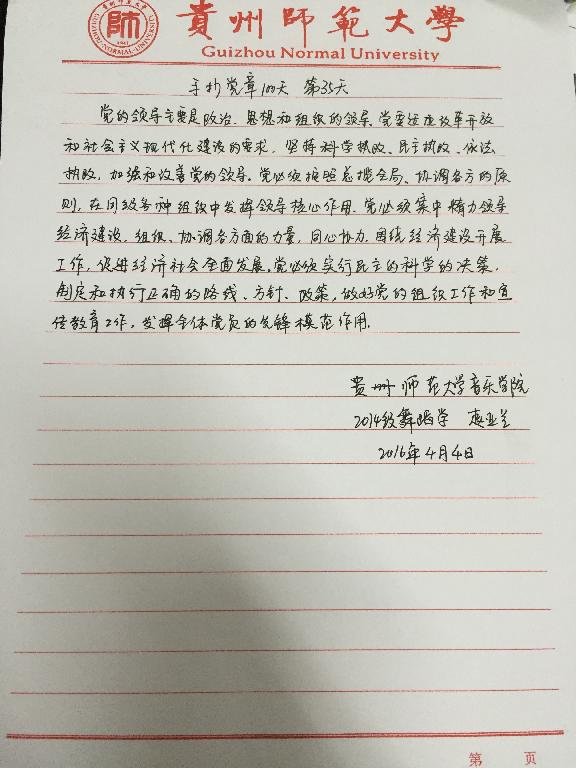 貴州師範大學
Guizhou Normal University
手抄党章100天 第35天
党的领导主要是政治、思想和组织的领导。党要适应改革开放
和社会主义现代化建设的要求，坚持科学执政、民主执政、依法
执政，加强和改善党的领导。党必须按照总揽全局、协调各方的原
则，在同级各种组织中发挥领导核心作用。党必须集中精力领导
经济建设，组织、协调各方面的力量，同心协力，围绕经济建设开展
工作，促进经济社会全面发展。党必须实行民主的科学的决策，
制定和执行正确的路线、方针、政策，做好党的组织工作和宣
传教育工作，发挥全体党员的先锋模范作用。
贵州师范大学音乐学院
2014级舞蹈学
2016年4月4日
第 页